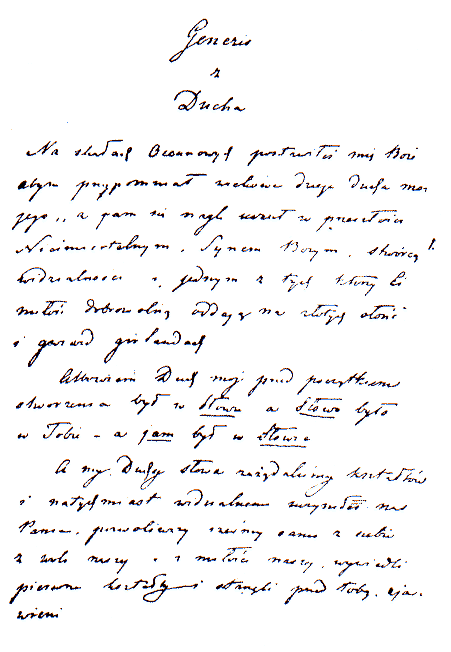 Genezis
z
Ducha
Na skałach Oceanowych postawiłeś mię Boże
abym przypomniał wiekowe dzieje ducha mo-
jego, a jam się nagle uczuł w przeszłości
Nieśmiertelnym, Synem Bożym, stwórcą
widzialności i jednym z tych który Ci
miłość dobrowolną oddają na złotych słońc
i gwiazd girlandach
Albowiem Duch mój przed początkiem
stworzenia był w Słowie a Słowo było
w Tobie - a jam był w Słowie
A my Duchy słowa zażądaliśmy kształtów
i natychmiast widzialnemi uczyniłeś nas
Panie, pozwoliwszy iżeśmy sami z siebie
z woli naszej i z miłości naszej wywiedli
pierwsze kształty i stanęli przed tobą zja-
wieni